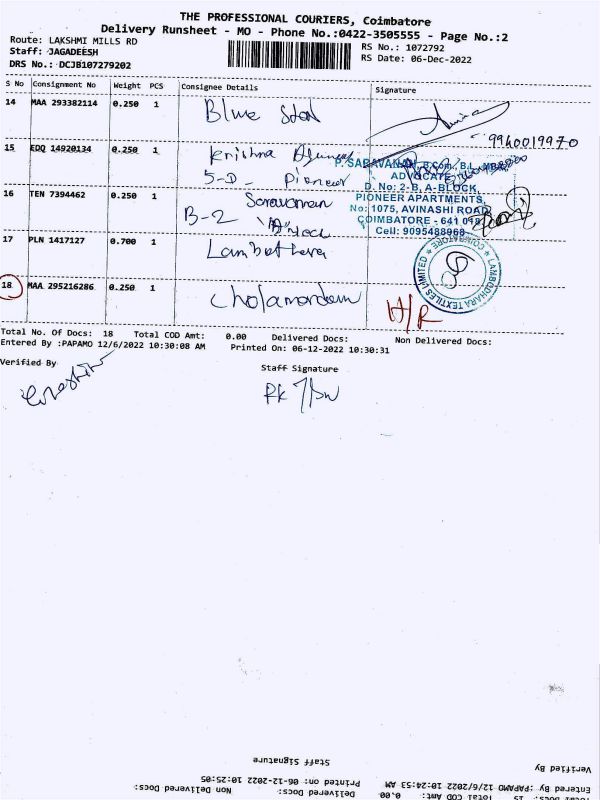 THE PROFESSIONAL COURIERS, Coimbatore
Delivery Runsheet - MO - Phone No.:0422-3505555 - Page No.:2
Route: LAKSHMI MILLS RD
Staff: JAGADEESH
DRS No.: DCJB107279202
RS No.: 1072792
RS Date: 06-Dec-2022
S No Consignment No Weight PCS Consignee Details Signature
14 MAA 293382114 0.250 1 Blue Star
9940019970
15 EDQ 14920134 0.250 1 Krishna
5-D- Pioneer
P. SARAVANAN, B.Com., B.L., MBA
ADVOCATE
D. No: 2-B, A-BLOCK,
PIONEER APARTMENTS,
No: 1075, AVINASHI ROAD,
COIMBATORE - 641 018
Cell: 9095488968
16 TEN 7394462 0.250 1 Saravanan
B-2 "A" Block
17 PLN 1417127 0.700 1 Lambothara
LAMBODHARA TEXTILES LIMITED
COIMBATORE
18 MAA 295216286 0.250 1 Cholamandam H/R
Total No. Of Docs: 18 Total COD Amt: 0.00 Delivered Docs: Non Delivered Docs:
Entered By :PAPAMO 12/6/2022 10:30:08 AM Printed On: 06-12-2022 10:30:31
Verified By Staff Signature
Verified By Staff Signature
Entered By :PAPAMO 12/6/2022 10:24:53 AM Printed on: 06-12-2022 10:25:05
Total No. Of Docs: 15 Total COD Amt: 0.00 Delivered Docs: Non Delivered Docs: